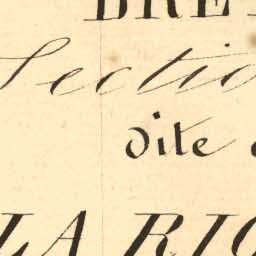 BRE
Section
dite
LA RIC